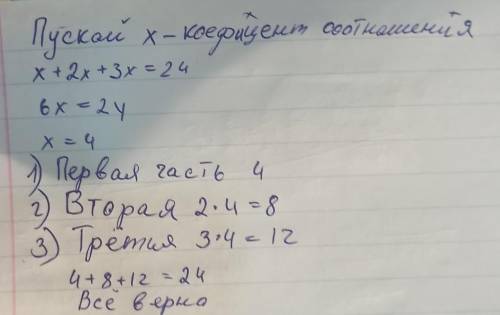 Пускай x - коефицент соотношения
x + 2x + 3x = 24
6x = 24
x = 4
1) Первая часть 4
2) Вторая 2·4=8
3) Третия 3·4=12
4+8+12=24
Всё верно